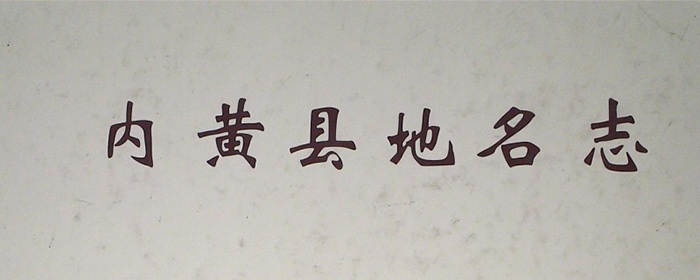 内黄县地名志